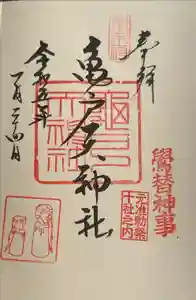 奉拝
鷽替神事
元准勅祭
十社之内
亀戸天神社
令和五年
一月二十四日